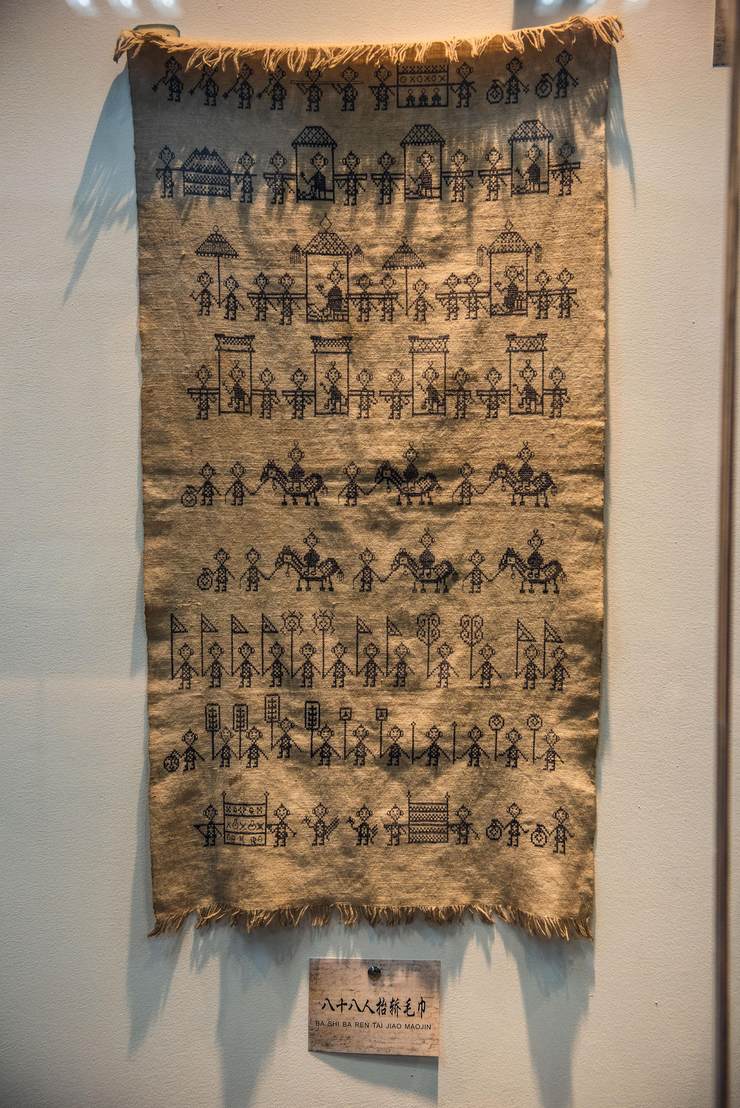 八十八人抬轿毛巾
BA SHI BA REN TAI JIAO MAOJIN